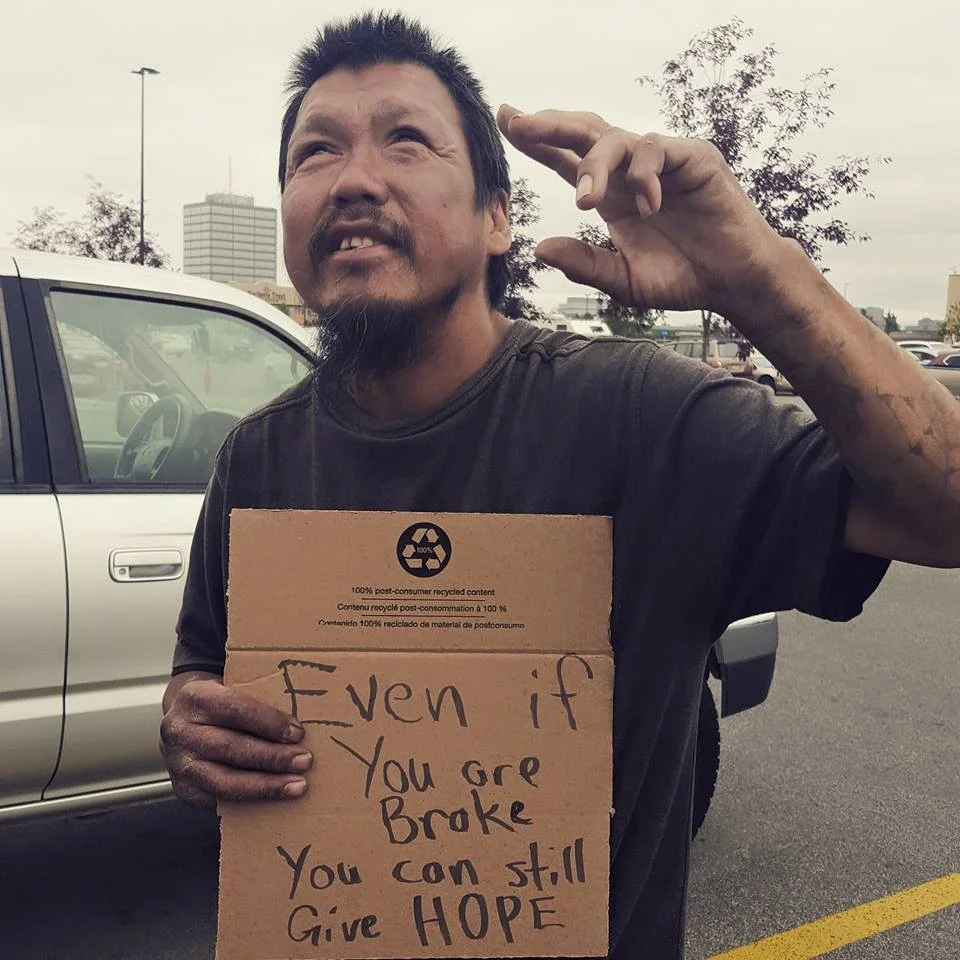 100%
100% post-consumer recycled content
Contenu recyclé post-consommation à 100 %
Contenido 100% reciclado de material de postconsumo
Even if
You are
Broke
You can still
Give HOPE